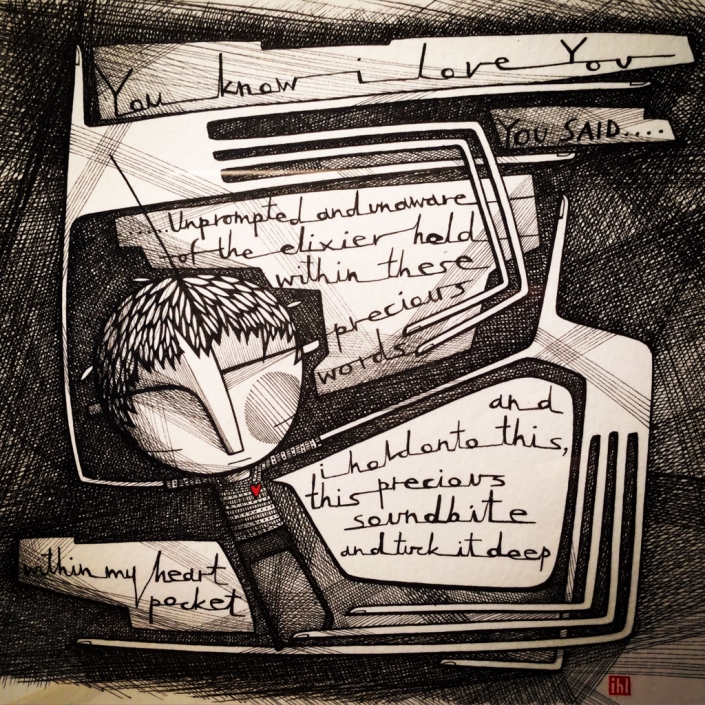 You know i love You
YOU SAID....
...Unprompted and unaware
of the elixier held
within these
precious
words..
and
i hold onto this,
this precious
soundbite
and tuck it deep
within my heart
pocket
ihl